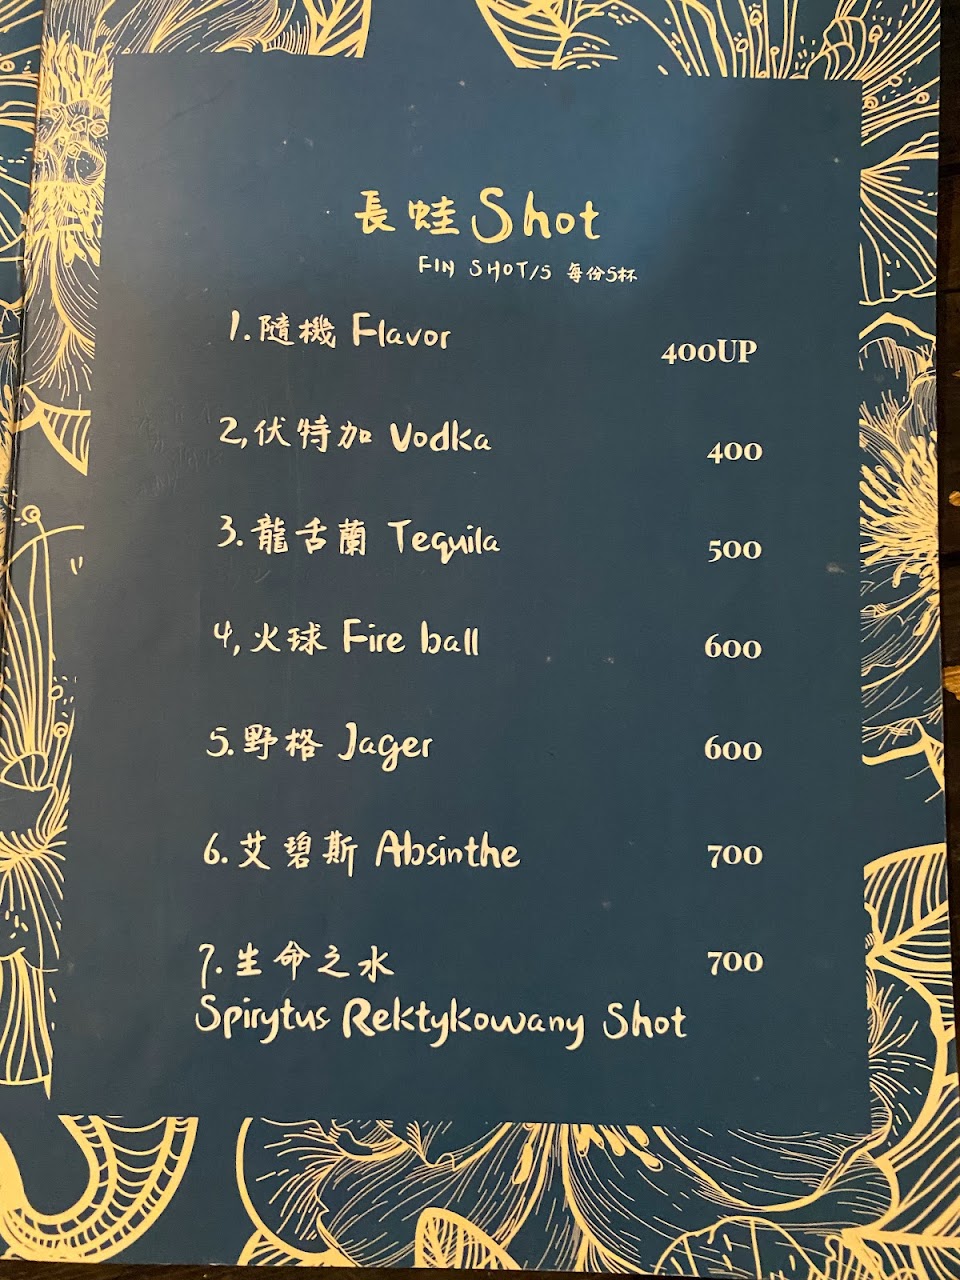 長蛙 Shot
FIN SHOT/5 每份5杯
1.隨機 Flavor 400UP
2,伏特加 Vodka 400
3.龍舌蘭 Tequila 500
4,火球 Fire ball 600
5.野格 Jager 600
6.艾碧斯 Absinthe 700
7.生命之水 700
Spirytus Rektykowany Shot